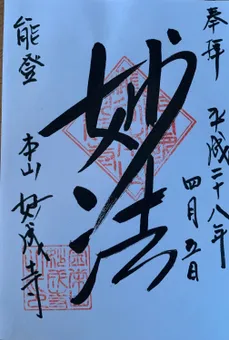 奉拝
平成二十八年
四月五日
妙法
能登
本山 妙成寺